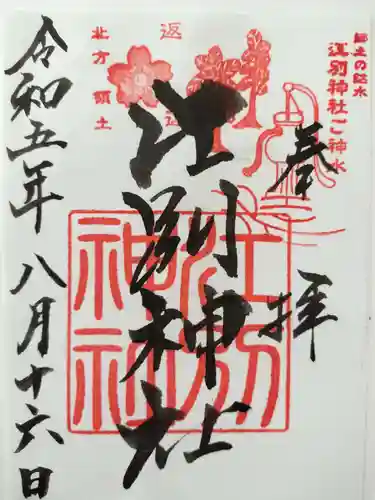 郷土の銘水
江別神社ご神水
奉拝
江別神社
江別
神社
返
還
北方領土
令和五年八月十六日